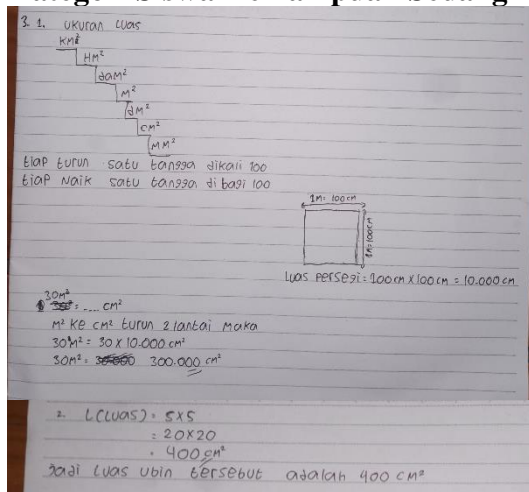 3. 1. UKURAN LUAS
KM²
HM²
daM²
M²
dM²
CM²
MM²
tiap turun satu tangga dikali 100
tiap Naik satu tangga di bagi 100
1M = 100cm
1M = 100cm
Luas persegi = 100 cm x 100 cm = 10.000 cm
30M² = .... cm²
M² ke CM² turun 2 lantai Maka
30M² = 30 x 10.000 cm²
30M² = 300.000 cm²
2. L(Luas) = 5x5
= 20x20
= 400 cm²
Jadi luas ubin tersebut adalah 400 CM²